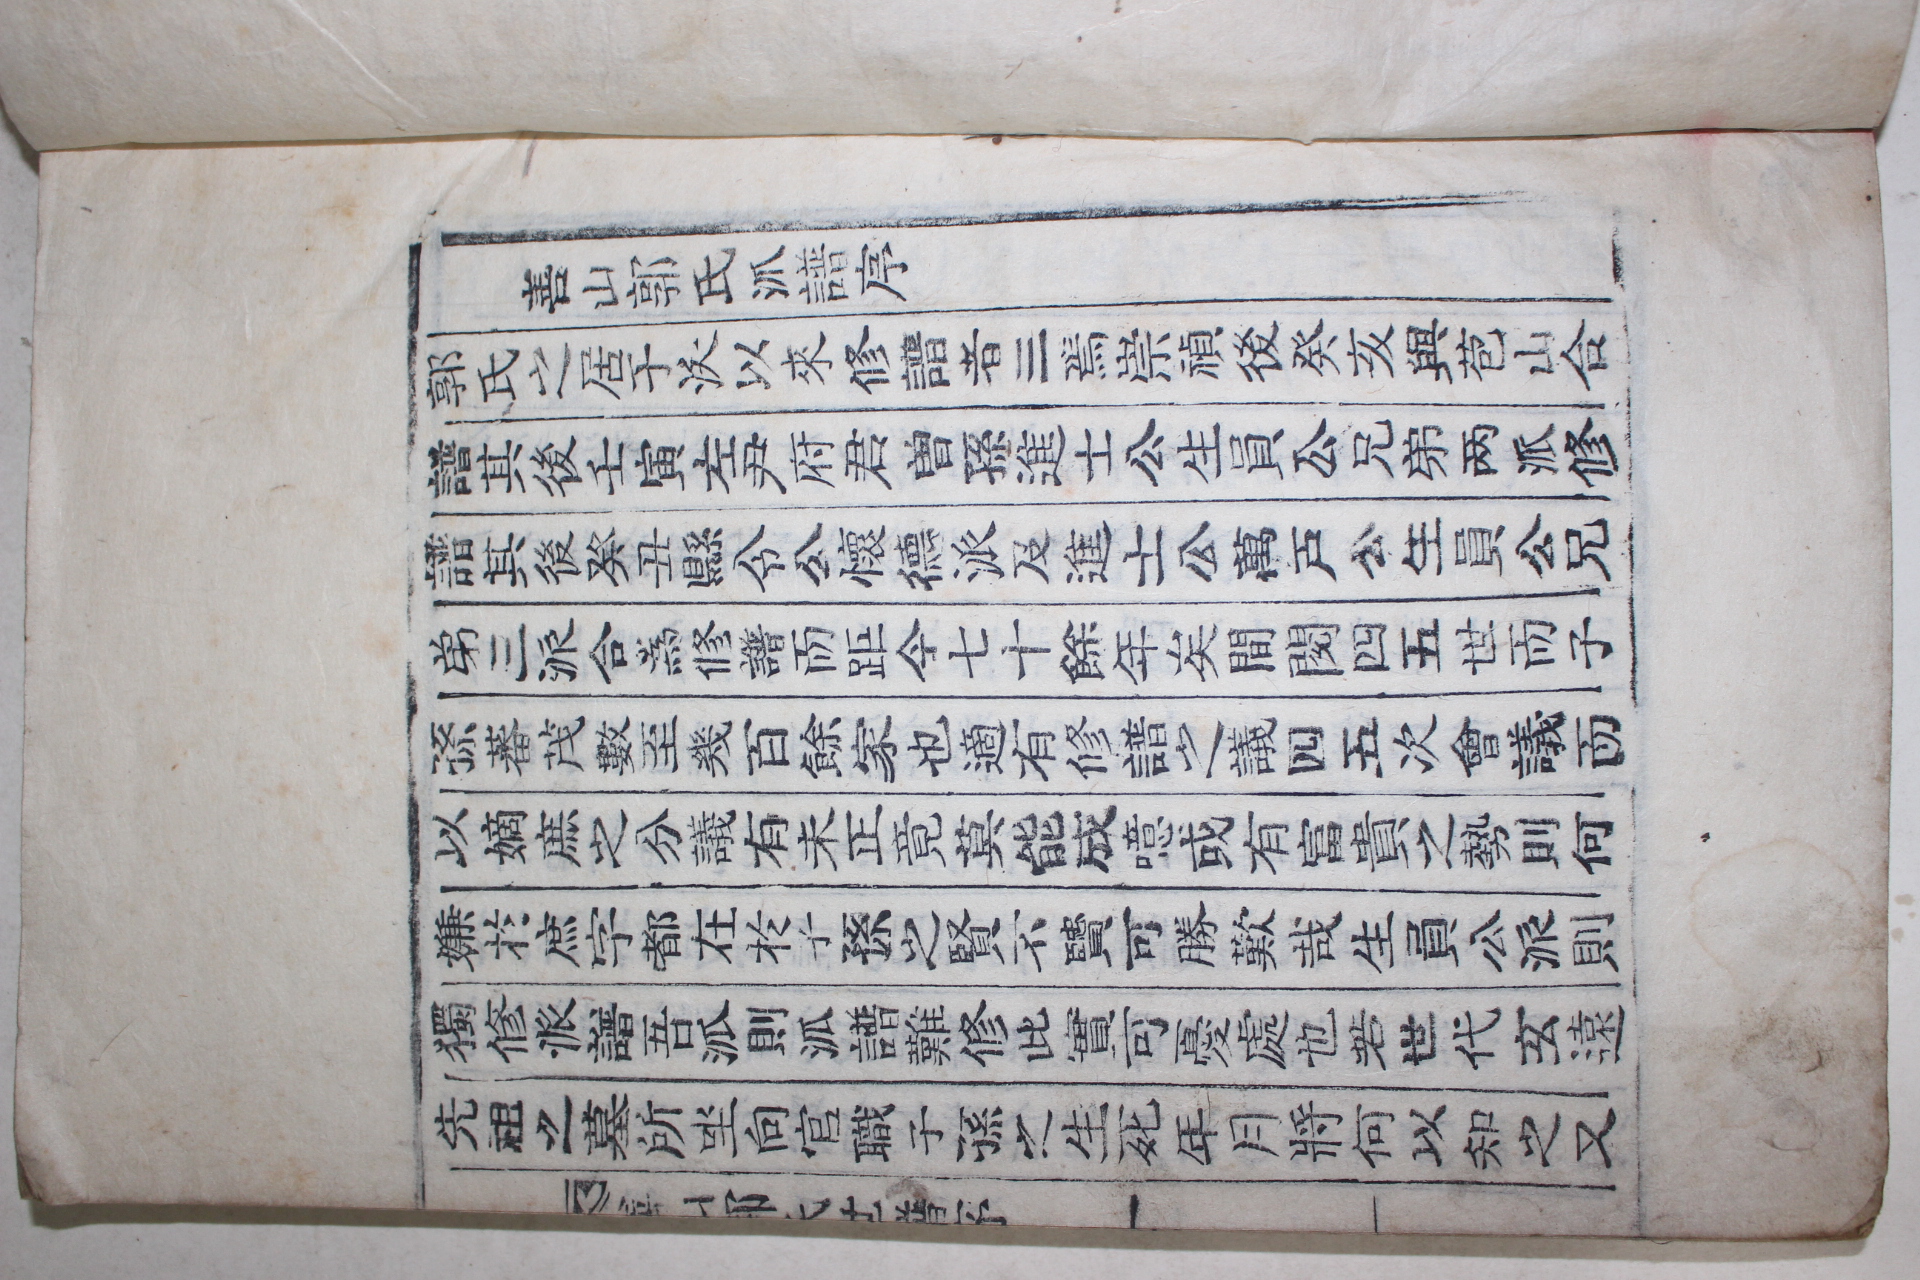 善山郭氏派譜序
郭氏之居于渼以來修譜者三焉崇禎後癸亥與苞山合
譜其後壬寅左尹府君曾孫進士公生員公兄弟兩派修
譜其後癸丑縣令公懷德派及進士公萬戶公生員公兄
弟三派合為修譜而距今七十餘年矣間閱四五世而子
孫蕃茂數至幾百餘家也適有修譜之議四五次會議而
以嫡庶之分議有未正竟莫能成噫或有富貴之勢則何
嫌於庶字都在於子孫之賢不賢可勝歎哉生員公派則
獨修派譜吾派則派譜難修此實可憂處也若世代玄遠
先祖之墓所坐向官職子孫之生死年月將何以知之又
善山郭氏世譜序 一